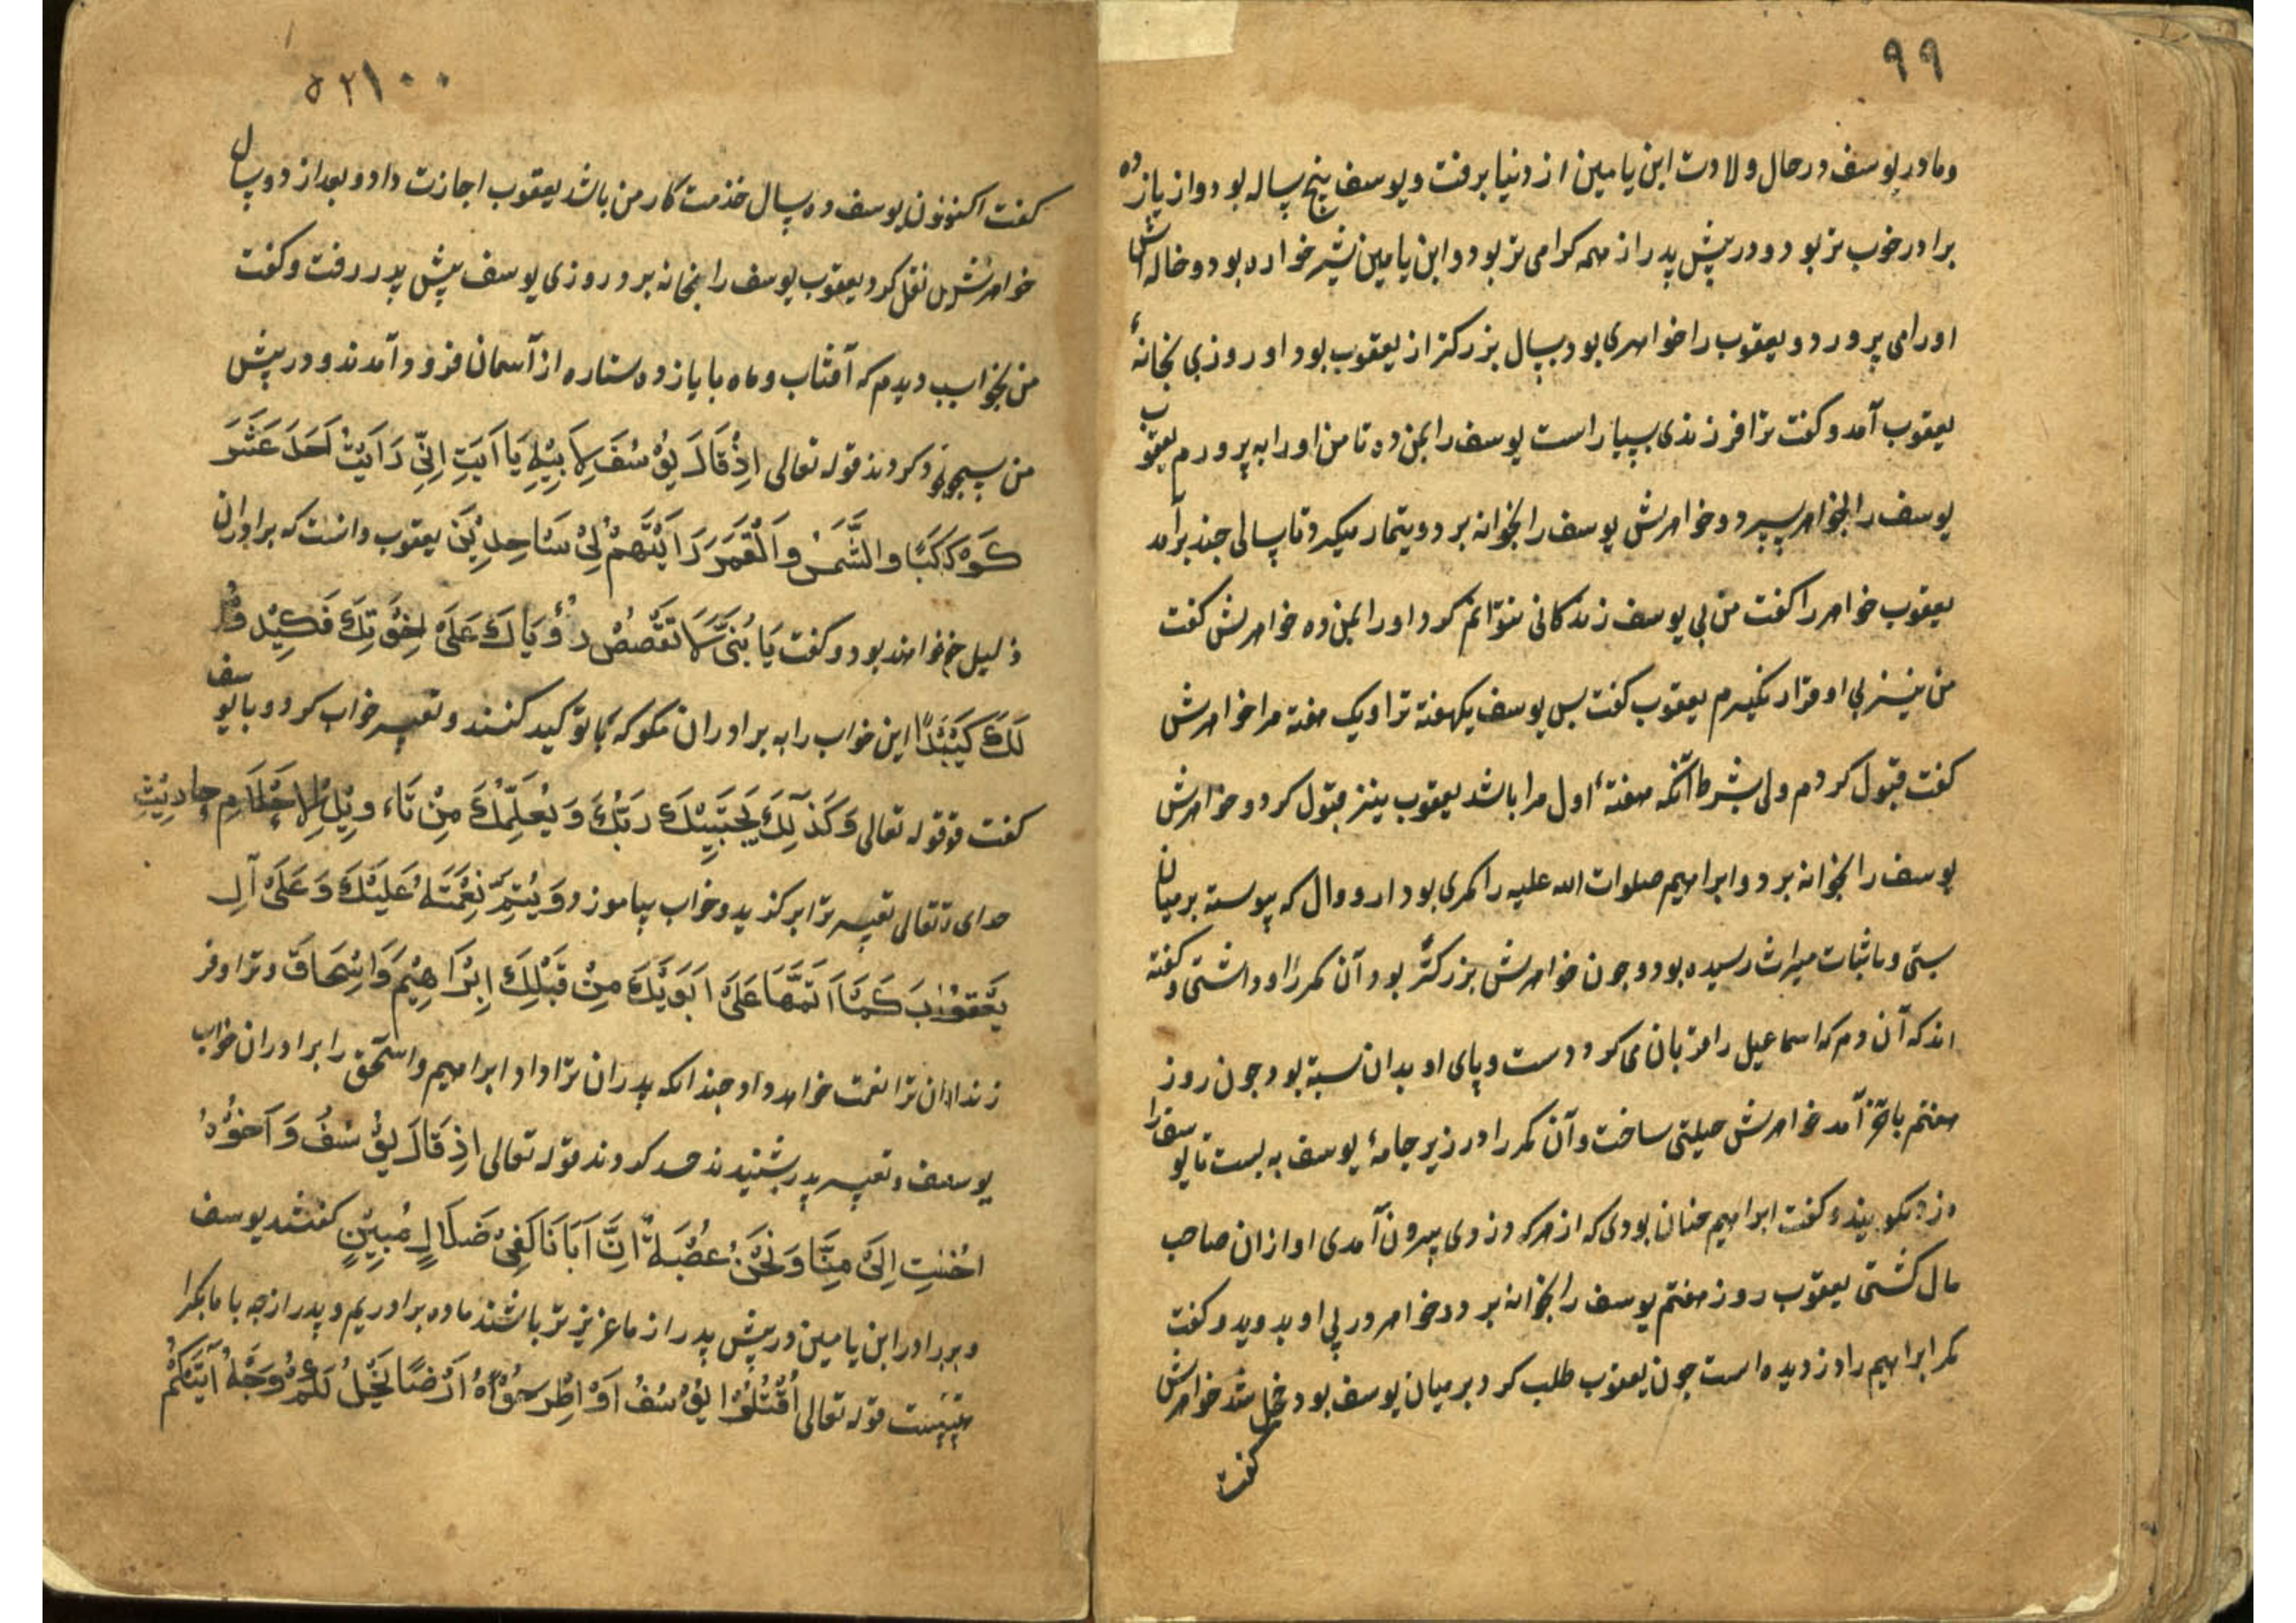 ۹۹
و مادر یوسف در حال ولادت ابن یامین از دنیا برفت و یوسف پنج ساله بود و از یازده
برادر خوب تر بود و در پیش پدر از همه کرامی تر بود و ابن یامین شیر خواره بود و خاله اش
او را می پرورد و یعقوب را خواهری بود بسال بزرکتر از یعقوب بود او روزی بخانهٔ
یعقوب آمد و کفت ترا فرزندی بسیار است یوسف را بمن ده تا من او را به پرورم یعقوب
یوسف را بخواهر سپرد و خواهرش یوسف را بخوانه برد و تیمار میکرد تا سالی جند برآمد
یعقوب خواهر را کفت من بی یوسف زندکانی نتوانم کرد او را بمن ده خواهرش کفت
من نیز بی او قرار نکیرم یعقوب کفت پس یوسف یکهفته ترا و یک هفته مرا خواهرش
کفت قبول کردم ولی بشرط آنکه هفتهٔ اول مرا باشد یعقوب نیز قبول کرد و خواهرش
یوسف را بخوانه برد و ابراهیم صلوات الله علیه را کمری بود از دوال که پیوسته بر میان
بستی و باثبات میراث رسیده بود و جون خواهرش بزرکتر بود آن کمر را او داشتی و کفته
اند که آن دم که اسماعیل را قربان می کرد دست و پای او بدان بسته بود جون روز
هفتم باخر آمد خواهرش حیلتی ساخت و آن کمر را در زیر جامهٔ یوسف به بست تا یوسف را
دزد کویند و کفت ابراهیم جنان بودی که از هر که دزدی بیرون آمدی او از ان صاحب
مال کشتی یعقوب روز هفتم یوسف را بخوانه برد و خواهر در پی او بدوید و کفت
کمر ابراهیم را دزدیده است جون یعقوب طلب کرد بر میان یوسف بود خجل شد خواهرش
کفت
۵۲۱۰۰
کفت اکنون یوسف ده سال خذمت کار من باشد یعقوب اجازت داد و بعد از دو سال
خواهرش نقل کرد یعقوب یوسف را بخانه برد روزی یوسف پیش پدر رفت و کفت
من بخواب دیدم که آفتاب و ماه با یازده ستاره از آسمان فرود آمدند و در پیش
من سجود کردند قوله تعالی اِذْ قَالَ یُوْسُفُ لِاَبِیْهِ یَا اَبَتِ اِنِّی رَاَیْتُ اَحَدَ عَشَرَ
کَوْکَبًا وَالشَّمْسَ وَالْقَمَرَ رَاَیْتَهُمْ لِیْ سَاجِدِیْنَ یعقوب دانست که برادران
ذلیل خواهند بود و کفت یَا بُنَیَّ لَا تَقْصُصْ رُؤْیَاكَ عَلَی اِخْوَتِكَ فَیَكِیْدُوْا
لَكَ كَیْدًا این خواب را به برادران مکو که با تو کید کنند و تعبیر خواب کرد و با یوسف
کفت قوله تعالی وَكَذٰلِكَ یَجْتَبِیْكَ رَبُّكَ وَیُعَلِّمُكَ مِنْ تَاْوِیْلِ الْاَحَادِیْثِ
خدای تعالی ترا برکذید و خواب بیاموزد وَیُتِمُّ نِعْمَتَهُ عَلَیْكَ وَعَلَی آلِ
یَعْقُوْبَ كَمَا اَتَمَّهَا عَلَی اَبَوَیْكَ مِنْ قَبْلُ اِبْرَاهِیْمَ وَاِسْحَاقَ و ترا و فر
زندان ترا نعمت خواهد داد جندانکه پدران ترا داد ابراهیم و اسحق را برادران خواب
یوسف و تعبیر پدر بشنیدند حسد کردند قوله تعالی اِذْ قَالَ یُوْسُفُ وَاَخُوْهُ
اَحَبُّ اِلَی مِنَّا وَنَحْنُ عُصْبَةٌ اِنَّ اَبَانَا لَفِیْ ضَلَالٍ مُبِیْنٍ کفتند یوسف
و برادر ابن یامین در پیش پدر از ما عزیز تر باشند ما ده برادریم و پدر از جه با ما
قوله تعالی اُقْتُلُوْا یُوْسُفَ اَوِ اطْرَحُوْهُ اَرْضًا یَخْلُ لَكُمْ وَجْهُ اَبِیْكُمْ